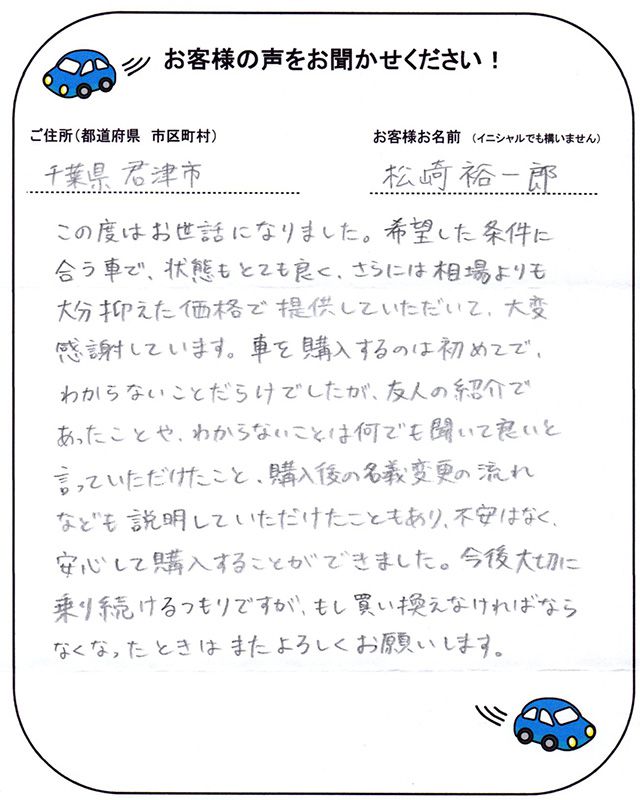 お客様の声をお聞かせください！
ご住所（都道府県　市区町村）
お客様お名前　（イニシャルでも構いません）
千葉県 君津市
松崎 裕一郎
この度はお世話になりました。希望した条件に
合う車で、状態もとても良く、さらには相場よりも
大分抑えた価格で提供していただいて、大変
感謝しています。車を購入するのは初めてで、
わからないことだらけでしたが、友人の紹介で
あったことや、わからないことは何でも聞いて良いと
言っていただけたこと、購入後の名義変更の流れ
なども説明していただけたこともあり、不安はなく、
安心して購入することができました。今後大切に
乗り続けるつもりですが、もし買い換えなければなら
なくなったときはまたよろしくお願いします。